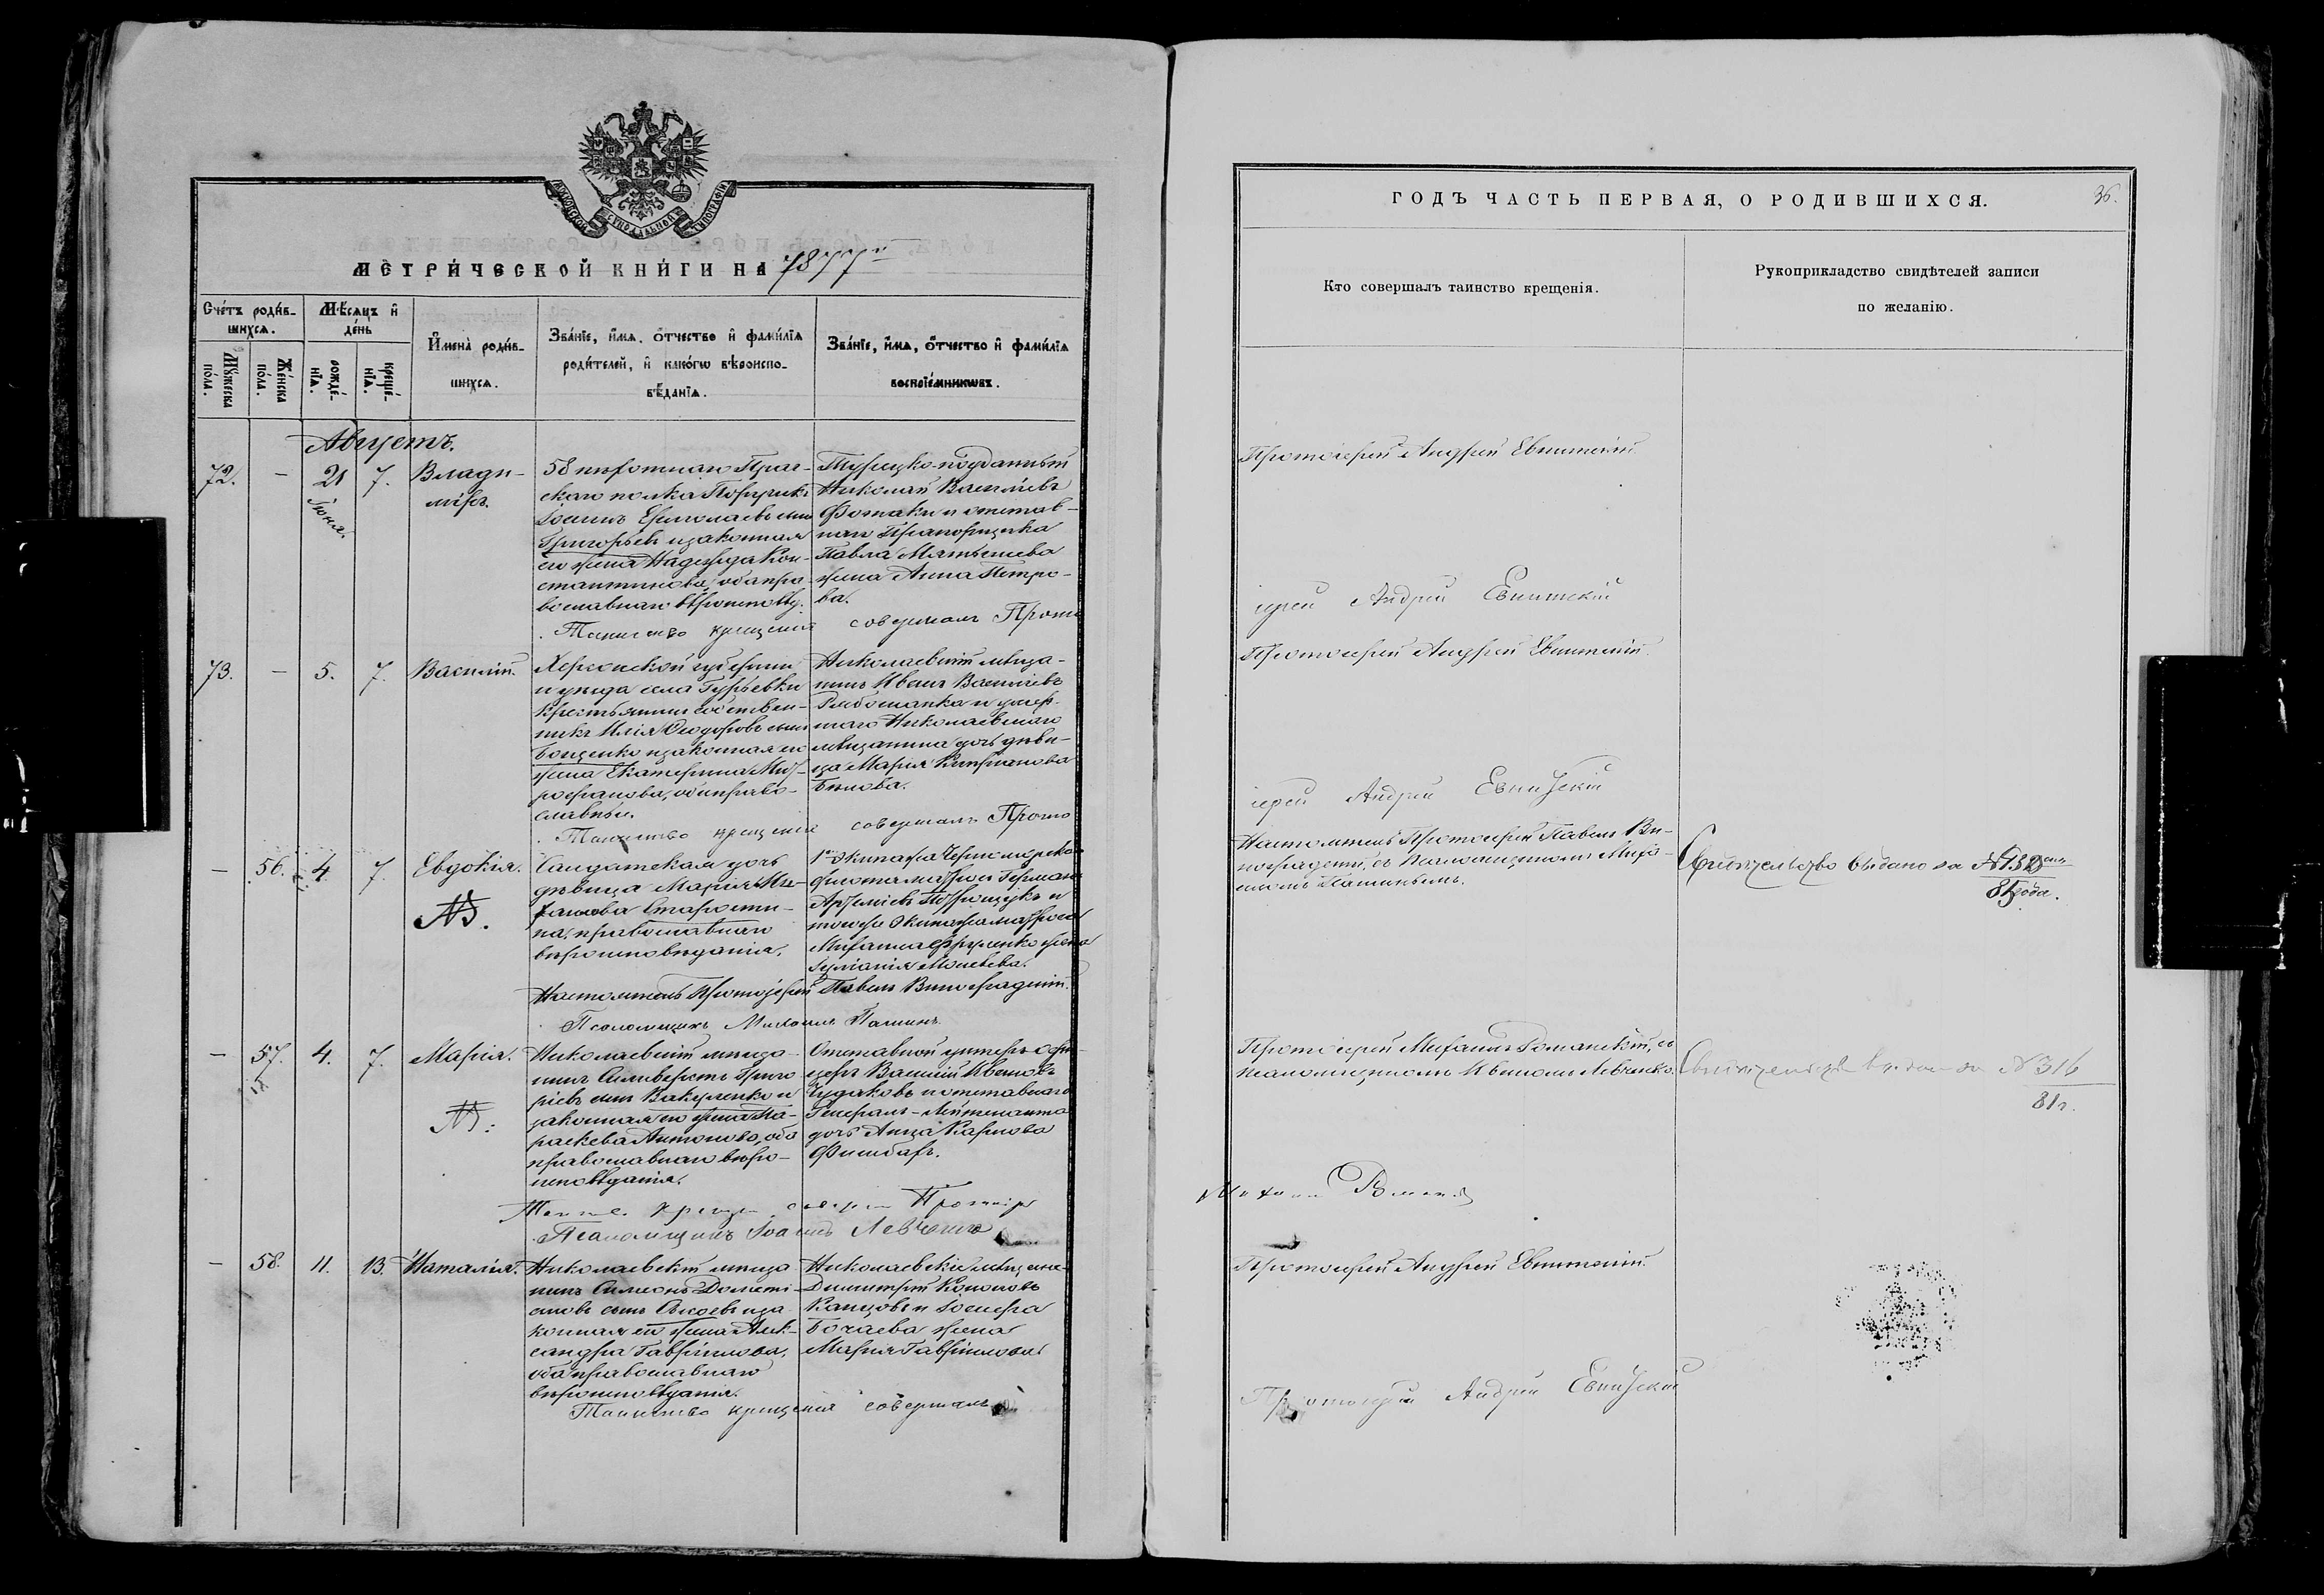 МОСКОВСКОЙ СѴНОДАЛЬНОЙ ТИПОГРАФІИ
МЕТРИ́ЧЕСКОЙ КНИ́ГИ НА 1877й
Сче́тъ роди́вшихсѧ.
Мꙋ́жеска по́ла.
Же́нска по́ла.
Мѣ́сѧцъ и҆ де́нь
рожде́нїѧ.
креще́нїѧ.
И҆мена̀ роди́вшихсѧ.
Зва́нїе, и҆́мѧ, ѻ҆́тчество и҆ фамилїѧ
роди́телей, и҆ како́гѡ вѣроиспо-
вѣ́данїѧ.
Зва́нїе, и҆́мѧ, ѻ҆́тчество и҆ фами́лїѧ
воспрїе́мникѡвъ.
Августъ.
72. – 21 Іюня. 7. Влади-
міръ.
58 пѣхотнаго Праг-
скаго полка Поручикъ
Іоаннъ Ермолаевъ сынъ
Григорьевъ и законная
его жена Надежда Кон-
стантинова, оба пра-
вославнаго вѣроисповѣд.
Турецко-подданный
Николай Васильевъ
Фотаки и отстав-
наго Прапорщика
Павла Матьяшева
жена Анна Петро-
ва.
Таинство крещенія совершалъ Прото
73. – 5. 7. Василій.
Херсонской губерніи
и уѣзда села Гурьевки
крестьянинъ собствен-
никъ Илія Ѳеодоровъ сынъ
Бощенко и законная его
жена Екатерина Мит-
рофанова, оба право-
славные.
Николаевскій мѣща-
нинъ Иванъ Васильевъ
Рябошапка и умер-
шаго Николаевскаго
мѣщанина дочь дѣви-
ца Марія Кипріанова
Бѣлова.
Таинство крещенія совершалъ Прото
– 56. 4. 7. Евдокія.
NB.
Солдатская дочь
дѣвица Марія Ми-
хаилова Старости-
на, православнаго
вѣроисповѣданія.
1го Экипажа Черноморскаго
флота матросъ Германъ
Артемьевъ и
того же Экипажа матроса
Михаила жена
Іуліанія Моисеева.
Настоятель Протоіерей Павелъ Виноградскій.
Псаломщикъ Михаилъ Пашинъ.
– 57. 4. 7. Марія.
NB:
Николаевскій мѣща-
нинъ Сильверстъ Григо
рьевъ сынъ Вакуленко и
законная его жена Па-
раскева Антонова, оба
православнаго вѣро-
исповѣданія.
Отставной унтеръ-офи-
церъ Василій Ивановъ
Чудаковъ и отставнаго
Генералъ-Лейтенанта
дочь Анна Карлова
Фишбахъ.
Псаломщикъ Іоаннъ Левченко
– 58. 11. 13. Наталія.
Николаевскій мѣща
нинъ Симеонъ Домети-
ановъ сынъ и за
конная его жена Алек-
сандра Гавріилова,
оба православнаго
вѣроисповѣданія.
Николаевскіе мѣщане
Димитрій Кононовъ
Канцовъ и Іосифа
Бочаева жена
Марія Гавріилова.
Таинство крещенія совершалъ
ГОДЪ ЧАСТЬ ПЕРВАЯ, О РОДИВШИХСЯ.
36.
Кто совершалъ таинство крещенія.
Рукоприкладство свидѣтелей записи
по желанію.
Протоіерей Андрей Евнитскій
іерей Андрей Евнитскій
Протоіерей Андрей Евнитскій.
іерей Андрей Евнитскій
Настоятель Протоіерей Павелъ Ви-
ноградскій, съ Псаломщикомъ Миха-
иломъ Пашинымъ.
Свидѣтельство выдано за №
81 года.
Протоіерей Михаилъ Романскій, съ
псаломщикомъ Иваномъ Левченко.
Свидѣтельство выдано за № 316
81 г.
Протоіерей Андрей Евнитскій.
Протоіерей Андрей Евнитскій